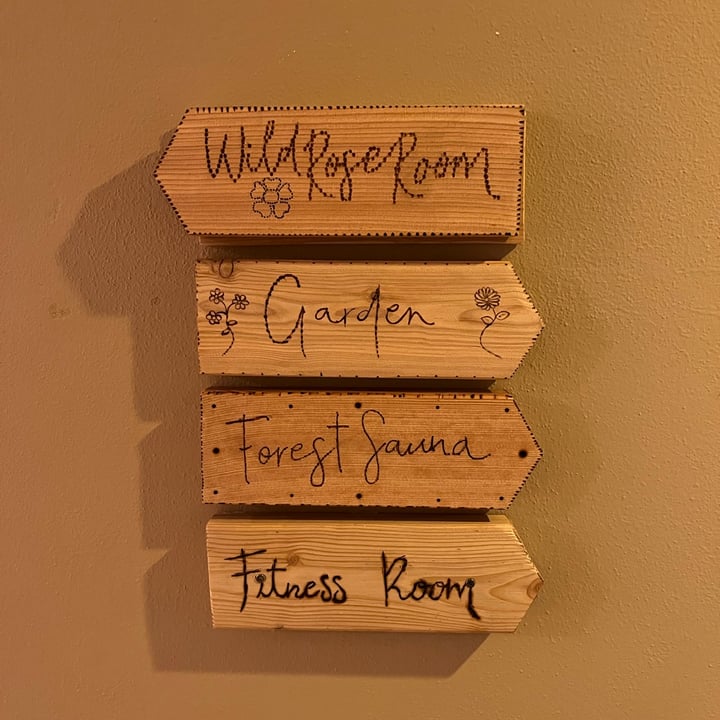 Wild Rose Room
Garden
Forest Sauna
Fitness Room